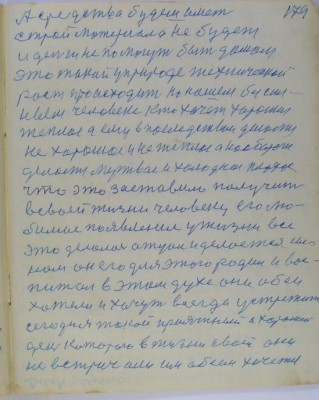 179
А средства будем имет
строй материала не будет
и деньги не помогут быт домам
это такий у природе технический
рост происходит по нашем бы си-
ивем человека кто хочет хорошая
теплое а ему в последствии делают
не хорошое и не тёплое а наоборот
делают мертвое и холодное
что это заставило получит
в своей жизни человеку его лю-
бимое появление у жизни все
это делалос отцом и делается сы-
ном он его для этого родил и вос-
питал в этом духе они обеи
хотели и хочут всегда устретит
сегодня такой приятный и хороший
ден которого в жизни своей они
не встричали им обеим хочется